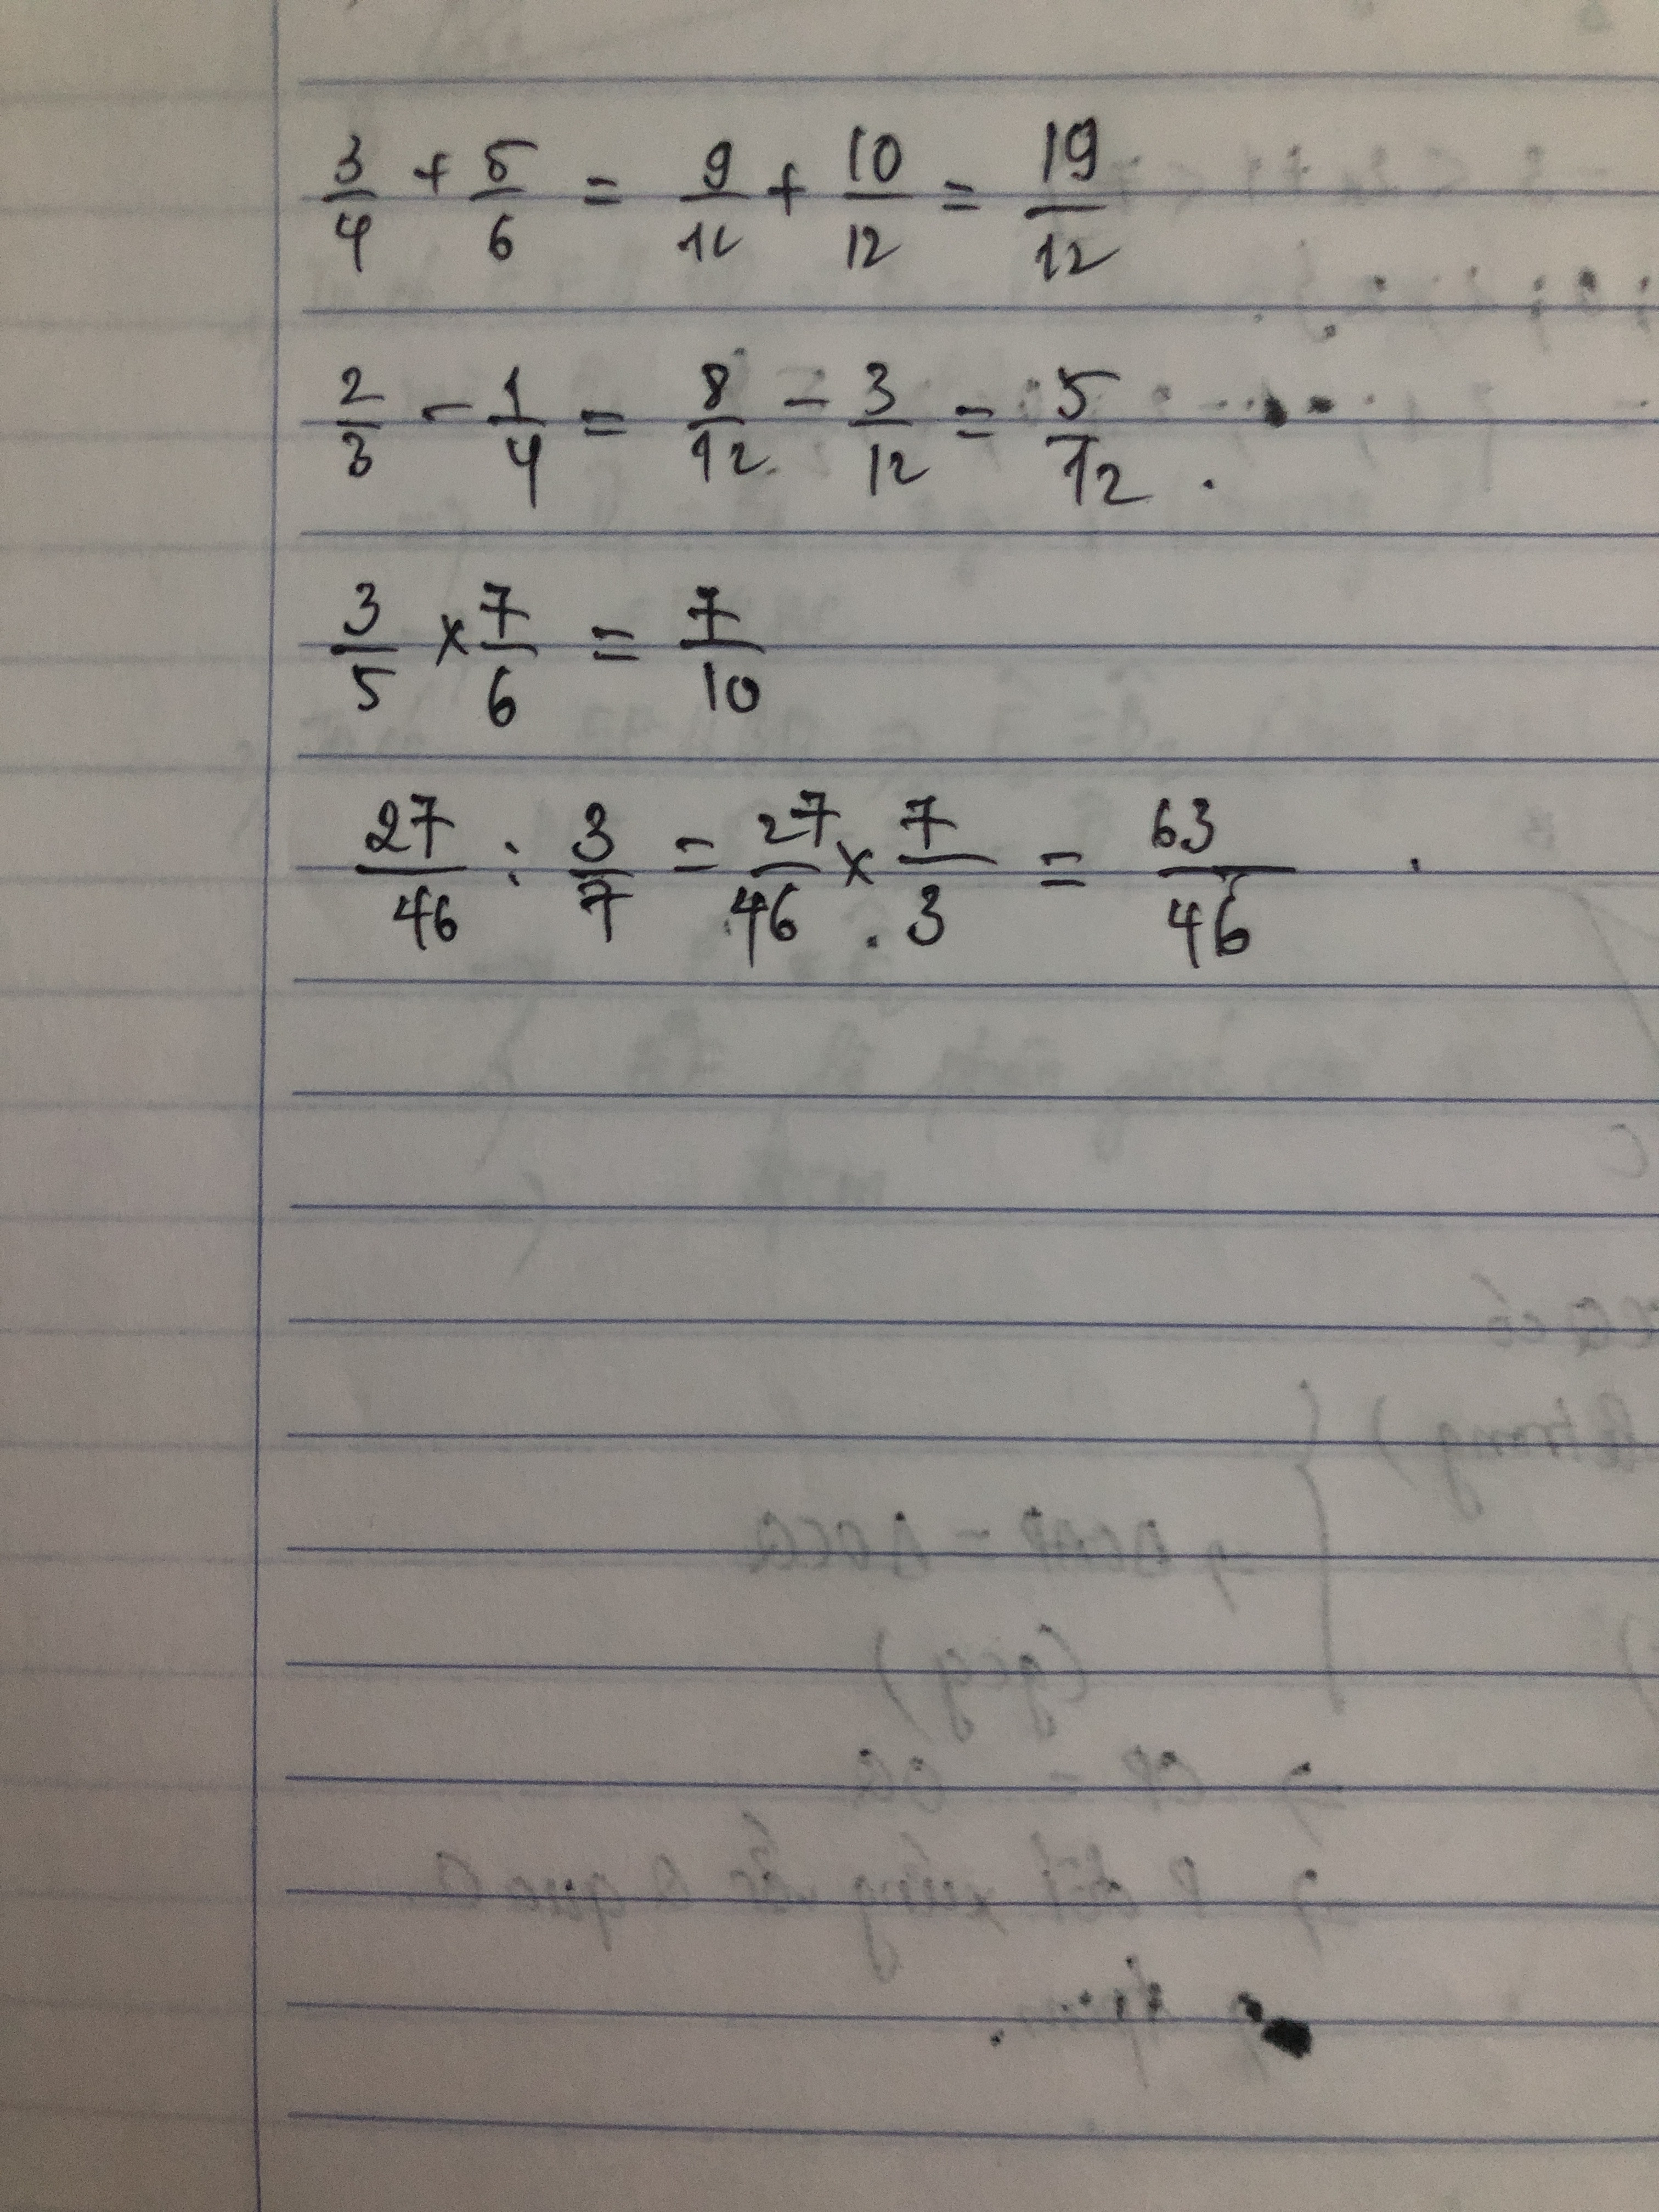 3/4 + 5/6 = 9/12 + 10/12 = 19/12
2/3 - 1/4 = 8/12 - 3/12 = 5/12 .
3/5 × 7/6 = 7/10
27/46 : 3/7 = 27/46 × 7/3 = 63/46 .